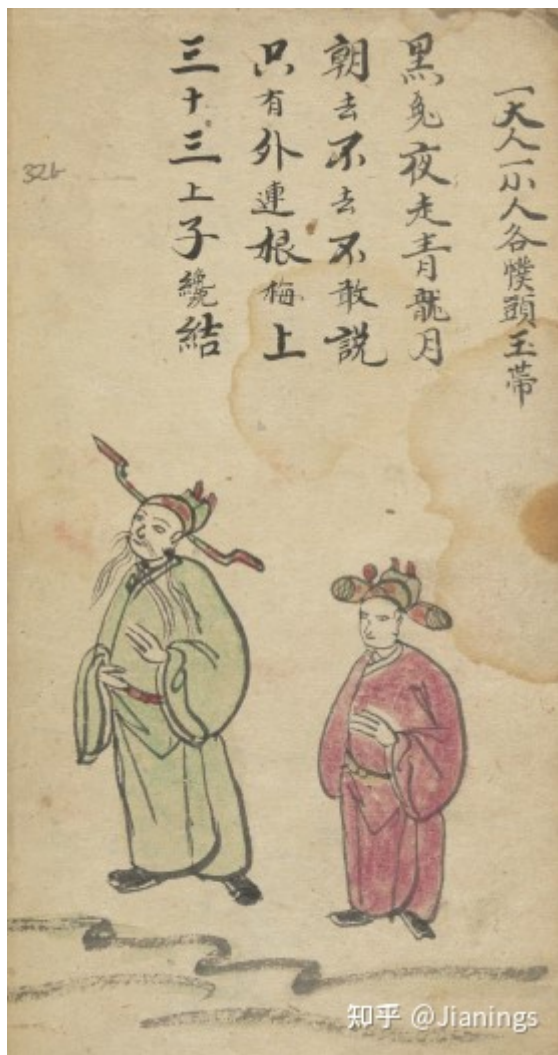 一大人一小人各幞頭玉帶
黑兎夜走青龍月
朝去不去不敢説
只有外連根梅上
三十三上子纔結
32b
知乎 @Jianings